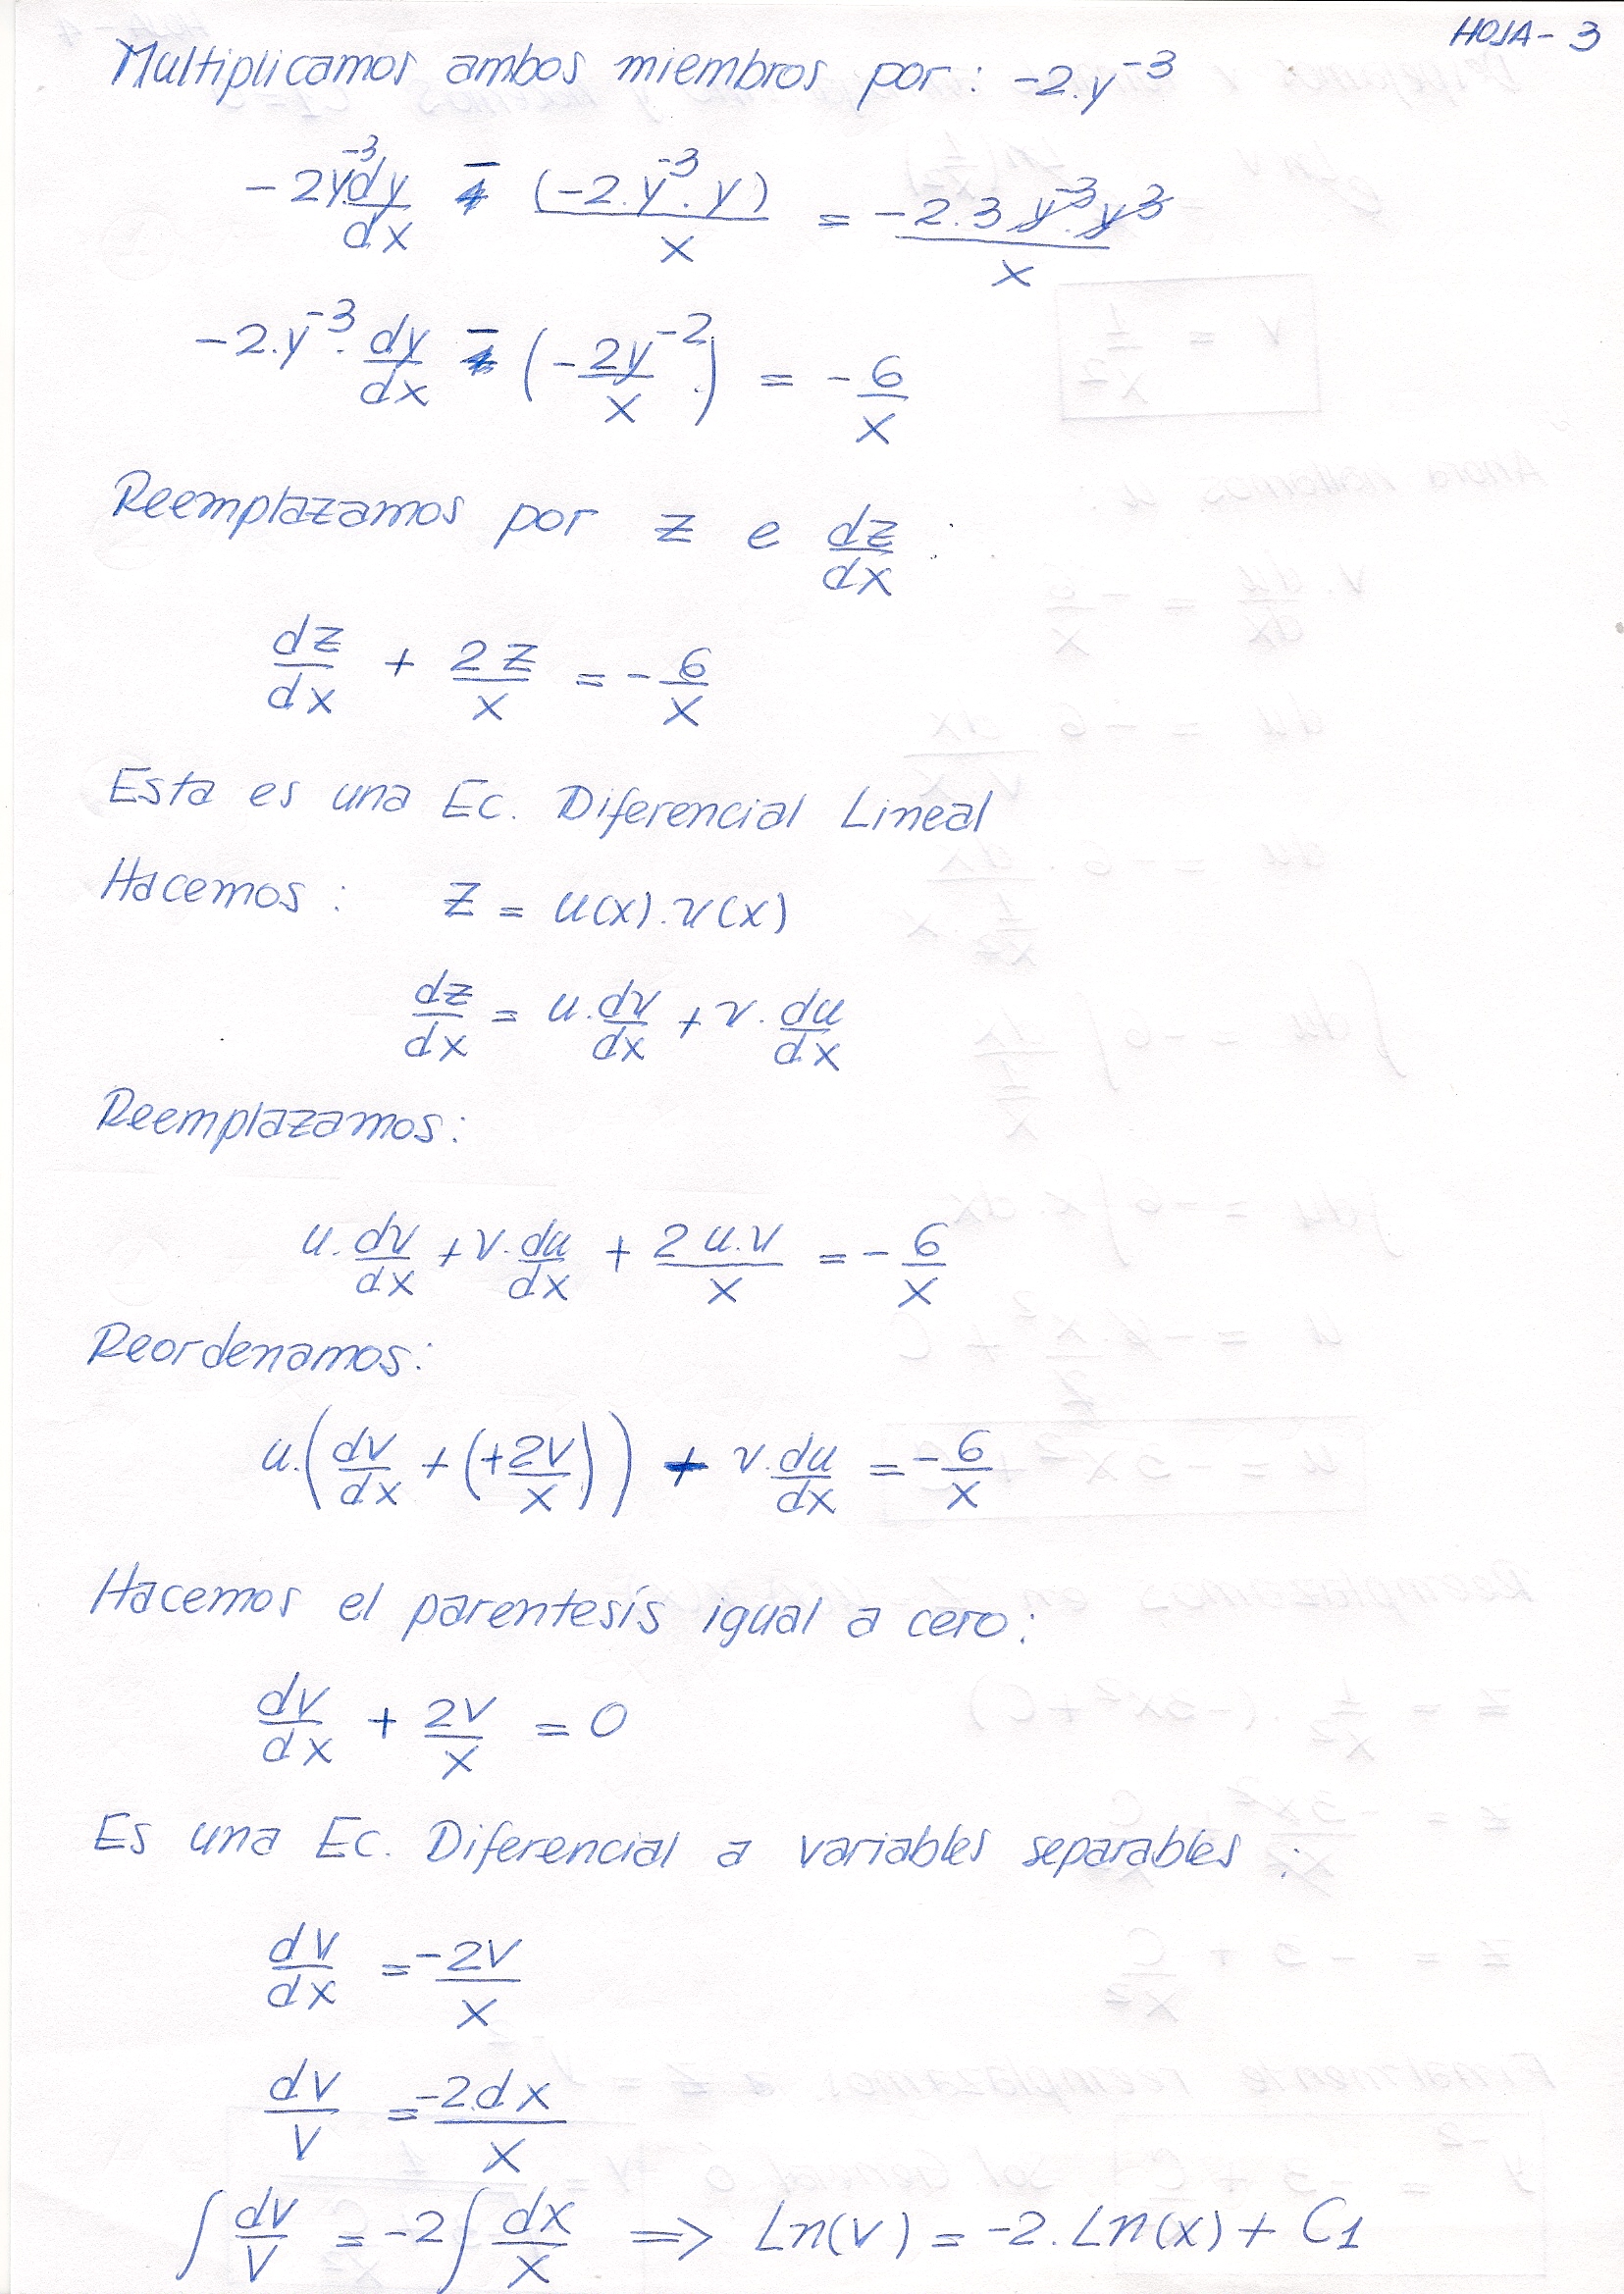 HOJA - 3
Multiplicamos ambos miembros por: -2.y⁻³
-2y⁻³dy/dx - (-2.y⁻³.y)/x = -2.3 y⁻³.y³/x
-2.y⁻³.dy/dx - (-2y⁻²/x) = -6/x
Reemplazamos por z e dz/dx :
dz/dx + 2z/x = -6/x
Esta es una Ec. Diferencial Lineal
Hacemos : z = u(x).v(x)
dz/dx = u.dv/dx + v.du/dx
Reemplazamos:
u.dv/dx + v.du/dx + 2u.v/x = -6/x
Reordenamos:
u.(dv/dx + (+2v/x)) + v.du/dx = -6/x
Hacemos el parentesís igual a cero:
dv/dx + 2v/x = 0
Es una Ec. Diferencial a variables separables :
dv/dx = -2v/x
dv/v = -2.dx/x
∫dv/v = -2∫dx/x ⟹ Ln(v) = -2.Ln(x) + C1